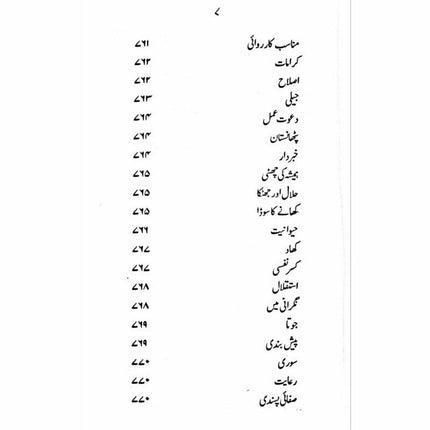 ۷
مناسب کارروائی ۷۶۱
کرامات ۷۶۲
اصلاح ۷۶۲
جیلی ۷۶۳
دعوت عمل ۷۶۴
پٹھانستان ۷۶۴
خبردار ۷۶۴
ہمیشہ کی چھٹی ۷۶۵
حلال اور جھٹکا ۷۶۵
گھاٹے کا سودا ۷۶۵
حیوانیت ۷۶۶
کھاد ۷۶۷
کسر نفسی ۷۶۷
استقلال ۷۶۸
نگرانی میں ۷۶۸
جوتا ۷۶۹
پیش بندی ۷۶۹
سوری ۷۷۰
رعایت ۷۷۰
صفائی پسندی ۷۷۰